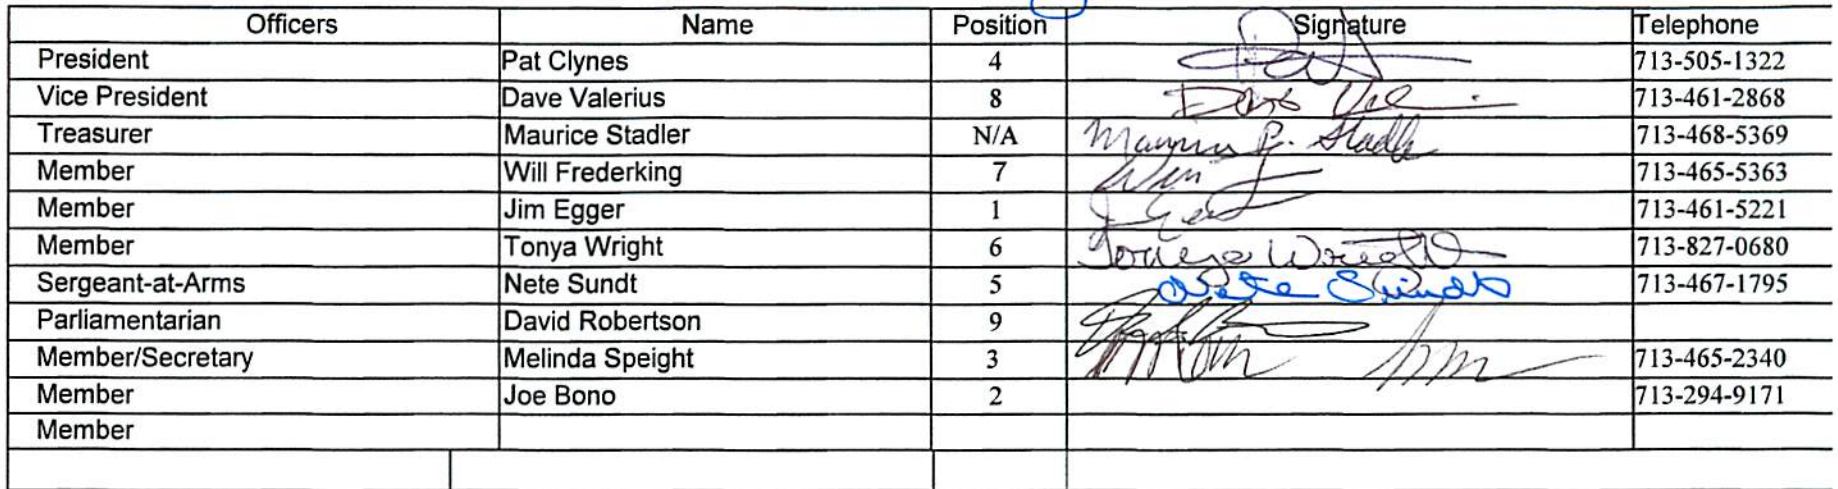 Officers Name Position Signature Telephone
President Pat Clynes 4 713-505-1322
Vice President Dave Valerius 8 Dave Val 713-461-2868
Treasurer Maurice Stadler N/A Maurice P. Stadler 713-468-5369
Member Will Frederking 7 Will 713-465-5363
Member Jim Egger 1 713-461-5221
Member Tonya Wright 6 Tonya Wright 713-827-0680
Sergeant-at-Arms Nete Sundt 5 Nete Sundt 713-467-1795
Parliamentarian David Robertson 9
Member/Secretary Melinda Speight 3 713-465-2340
Member Joe Bono 2 713-294-9171
Member